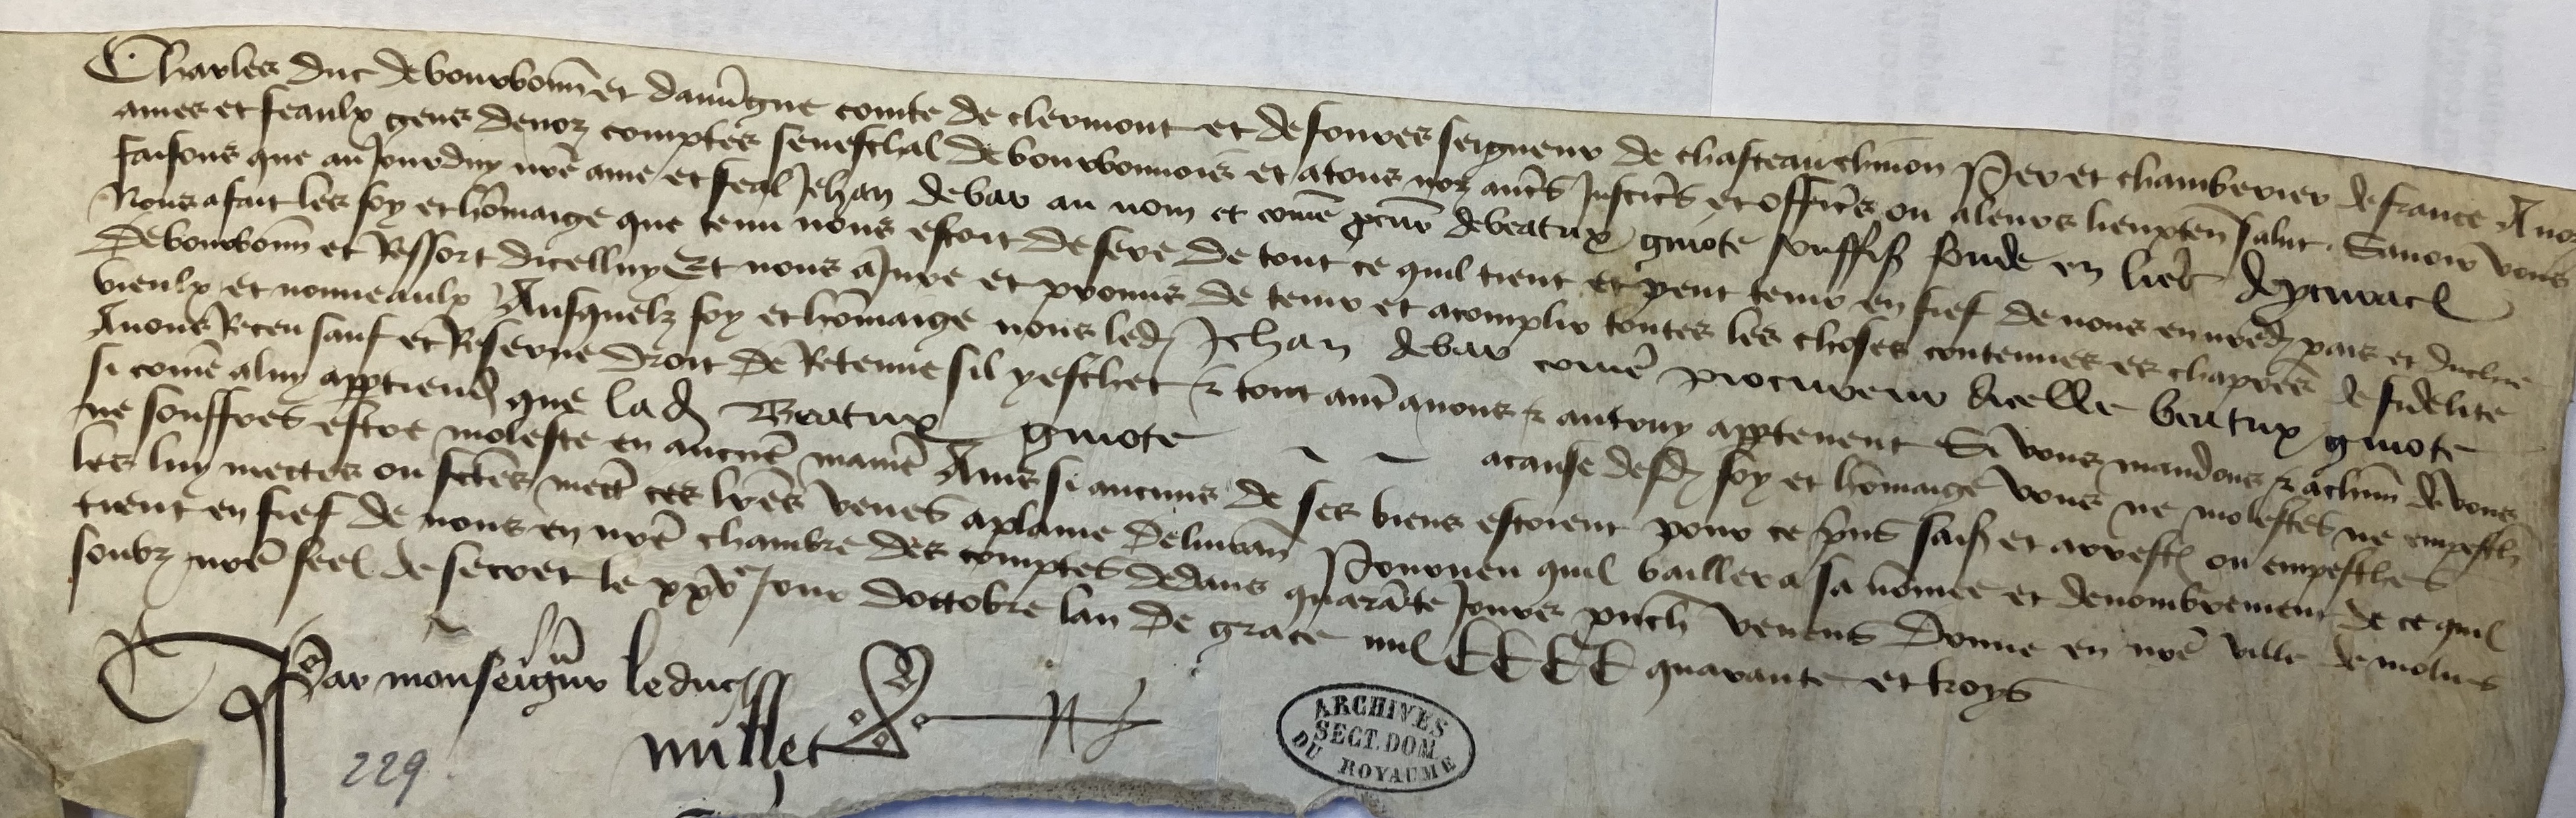 Charles duc de bourbonn et dauu'gne comte de clermont et de fourez seigneur de chasteauchinon Per et chamberier de france A noz
amez et feaulx gens de noz comptes seneschal de bourbonnois et a tous noz autr's justic's et offic's ou a leurs lieuxten' salut. Sauoir vous
faisons que au jourduy nre ame et feal Jehan de bar au nom et come pcur' de beatrix guiote souffis' fonde en lict' de pcuracl
Nous a fait les foy et homaige que tenu nous estoit de fere de tout ce quil tient et peut tenir en fief de nous en nred' pais et duchie
De bourbonn et Ressort dicelluy Et nous a jure et promis de tenir et acomplir toutes les choses contenues es chapitres de fidelite
vieulx et nouueaulx Ausquelz foy et homaige nous led' Jehan de bar come procureur dicelle beatrix guiote
Auons Receu sauf et Reserue droit de Retenue sil y eschet & tout autr' a nous & autruy apptenent Si vous mandons & a chun de vous
si come a luy apptiend' que lad' Beatrix guiote a cause desd' foy et homaige vous ne molestes ne empesch'
ne souffres estre moleste en aucune manie' Ains si aucuns de ses biens estoient pour ce prins saisi et arreste ou empesches
les luy mectes ou fctes mectr' ces lres veues a plaine deliuran' Pourueu quil baillera sa nomee et denombrement de ce quil
tient en fief de nous en nre chambre des comptes dedans quarate jours pnch' venens Donne en nre ville de molins
soubz nre seel de secret le xxve jour doctobre lan de grace mil CCCC quarante et troys
Par monseignr le duc
millet
229
ARCHIVES
SECT. DOM.
DU ROYAUME